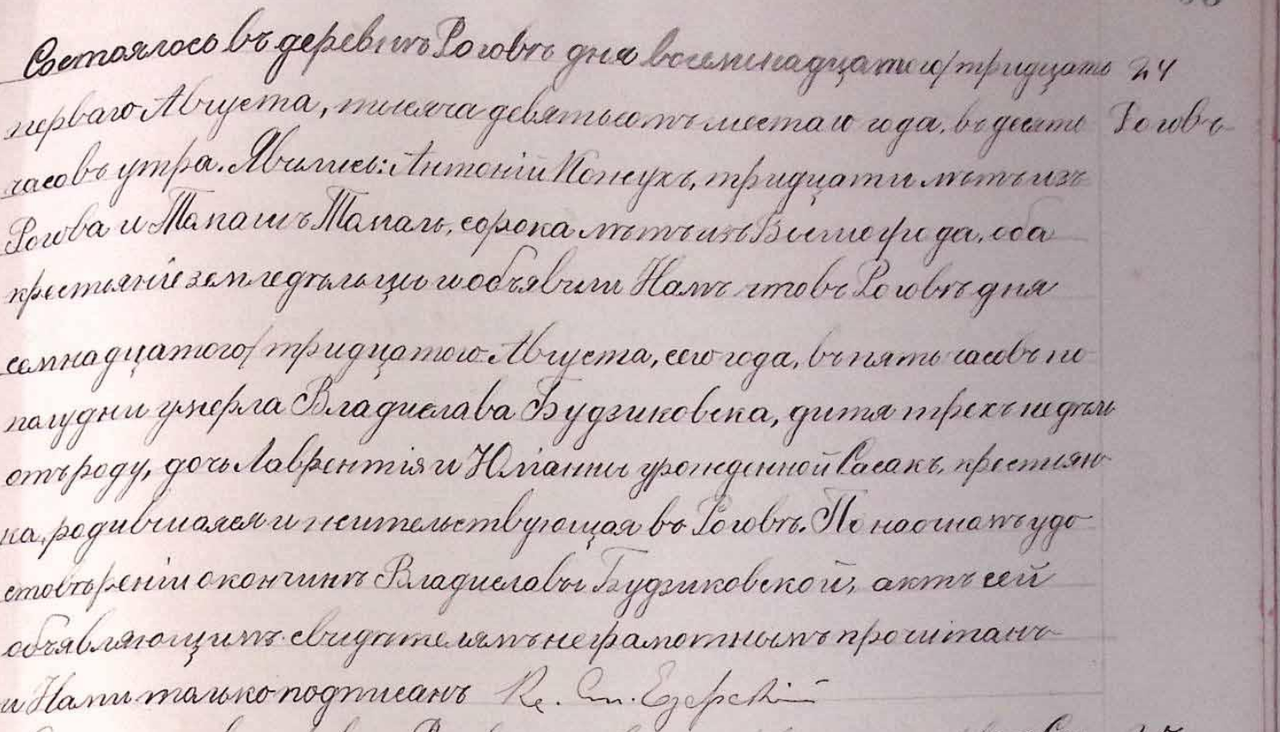 Состоялось въ деревнѣ Роговѣ дня восемнадцатого/тридцать 24
перваго Августа, тысяча девятьсотъ шестаго года, въ десять Роговъ
часовъ утра. Явились: Антоній Кожухъ, тридцати лѣтъ изъ
Рогова и Томашъ Томаль, сорока лѣтъ изъ оба
крестьяне земледѣльцы и объявили Намъ что въ Роговѣ дня
семнадцатого/тридцатого Августа, сего года, въ пять часовъ по
полудни умерла Владислава Будзиковска, дитя трехъ недѣль
отъ роду, дочь Лаврентія и Юліанны урожденной Сасакъ, крестьян-
ка, родившаяся и жительствующая въ Роговѣ. По настомъ удо-
стовѣреніи о кончинѣ Владиславы Будзиковской, актъ сей
объявляющимъ свидѣтелямъ неграмотнымъ прочитанъ
и Нами только подписанъ Кс. Ст. Езерскій